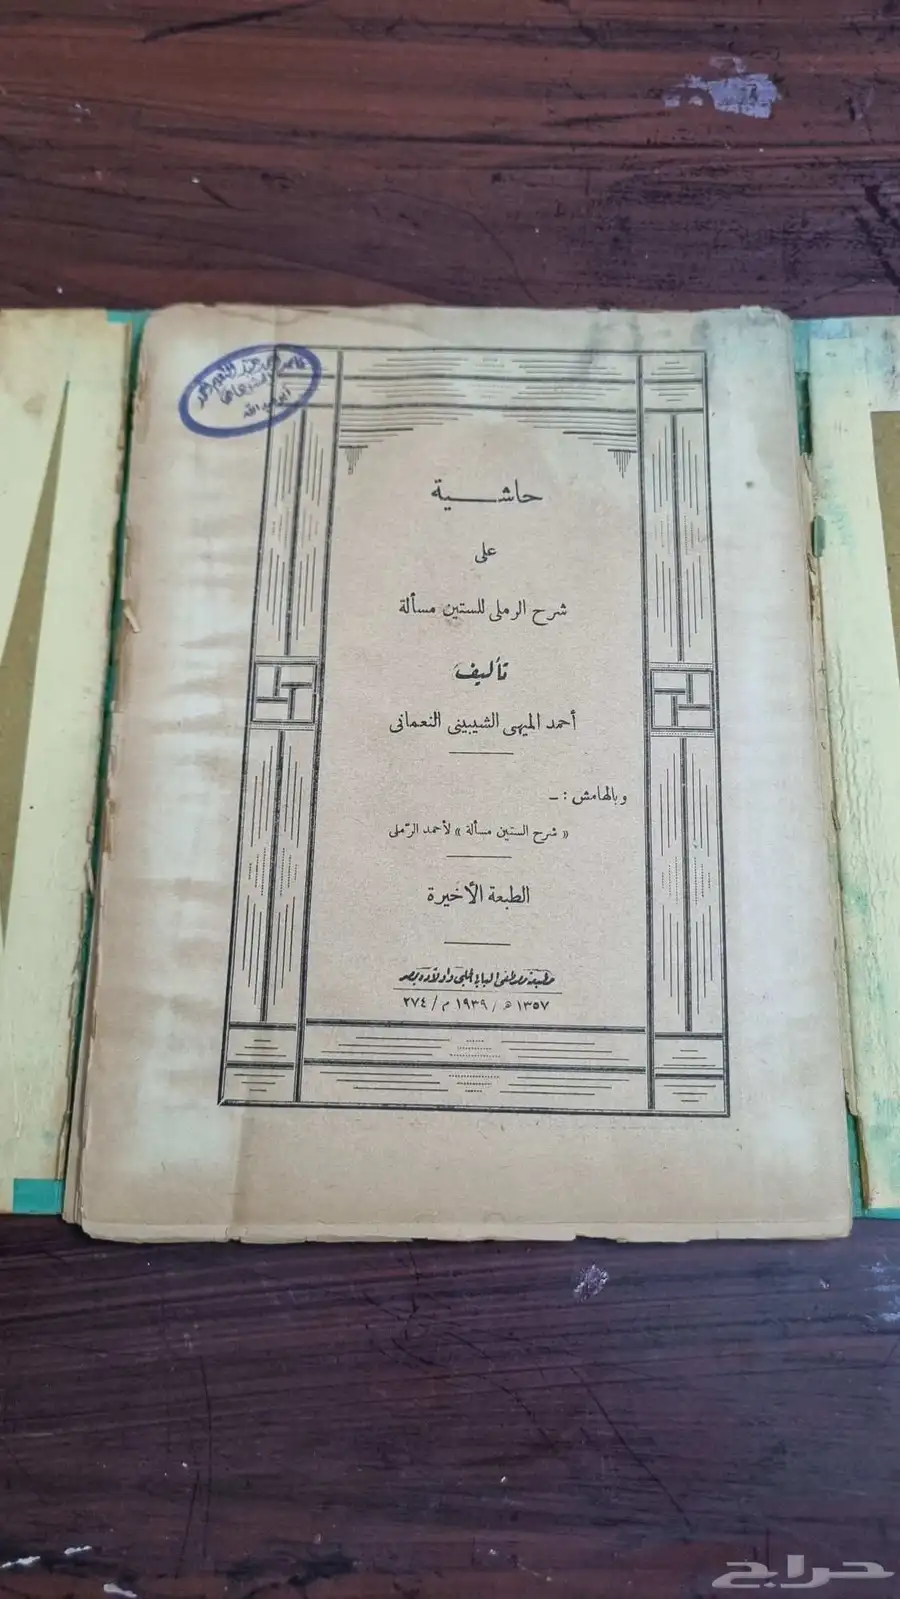 حاشية
على
شرح الرملى للستين مسألة
تأليف
أحمد الميهى الشيبينى النعمانى
وبالهامش : ــ
« شرح الستين مسألة » لأحمد الرملى
الطبعة الأخيرة
مطبعة مصطفى البابى الحلبى وأولاده بمصر
١٣٥٧ ه / ١٩٣٩ م / ٢٧٤
حراج